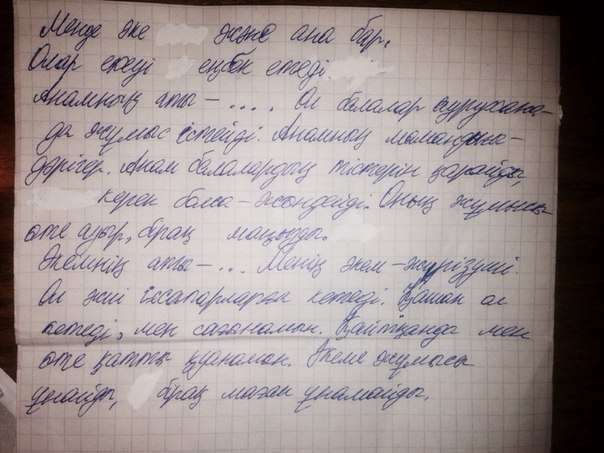 Менде әке және ана бар.
Олар екеуі еңбек етеді
Анамның аты - .... Ол балалар аурухана-
да жұмыс істейді. Анамның мамандығы-
дәрігер. Анам балалардың тістерін қарайды,
керек болса - жөндейді. Оның жұмысы
өте ауыр, бірақ маңызды.
Әкемнің аты - ... Менің әкем - жүргізуші
Ол жиі іссапарларға кетеді. Қашан ол
кетеді, мен сағынамын. Қайтқанда мен
өте қатты қуанамын. Әкеме жұмысы
ұнайды, бірақ маған ұнамайды.